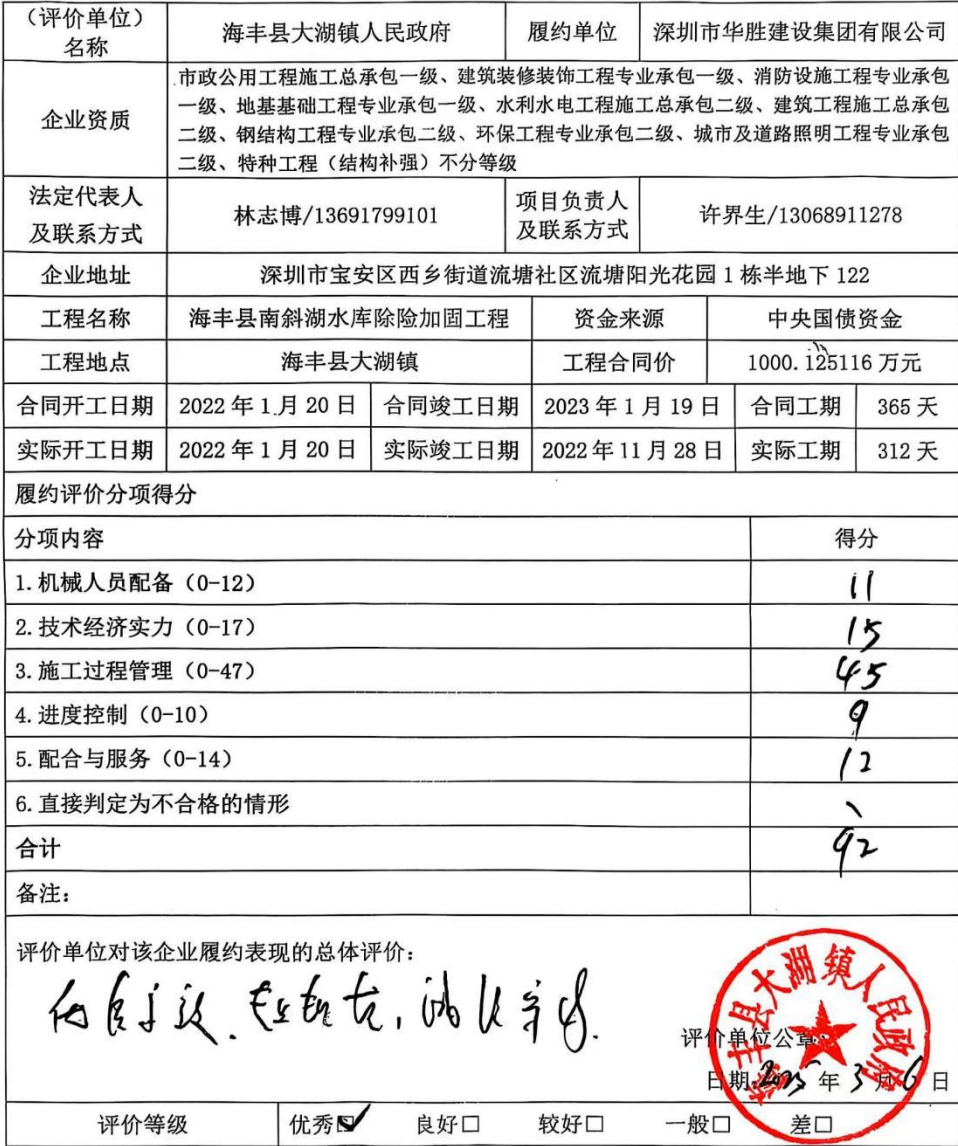 （评价单位）名称 海丰县大湖镇人民政府 履约单位 深圳市华胜建设集团有限公司
企业资质
市政公用工程施工总承包一级、建筑装修装饰工程专业承包一级、消防设施工程专业承包
一级、地基基础工程专业承包一级、水利水电工程施工总承包二级、建筑工程施工总承包
二级、钢结构工程专业承包二级、环保工程专业承包二级、城市及道路照明工程专业承包
二级、特种工程（结构补强）不分等级
法定代表人及联系方式 林志博/13691799101 项目负责人及联系方式 许界生/13068911278
企业地址 深圳市宝安区西乡街道流塘社区流塘阳光花园 1 栋半地下 122
工程名称 海丰县南斜湖水库除险加固工程 资金来源 中央国债资金
工程地点 海丰县大湖镇 工程合同价 1000.125116 万元
合同开工日期 2022 年 1 月 20 日 合同竣工日期 2023 年 1 月 19 日 合同工期 365 天
实际开工日期 2022 年 1 月 20 日 实际竣工日期 2022 年 11 月 28 日 实际工期 312 天
履约评价分项得分
分项内容 得分
1.机械人员配备（0-12） 11
2.技术经济实力（0-17） 15
3.施工过程管理（0-47） 45
4.进度控制（0-10） 9
5.配合与服务（0-14） 12
6.直接判定为不合格的情形 、
合计 92
备注：
评价单位对该企业履约表现的总体评价：
海丰县大湖镇人民政府
评价单位公章：
日期 2025 年 3 月 6 日
评价等级 优秀☑ 良好□ 较好□ 一般□ 差□